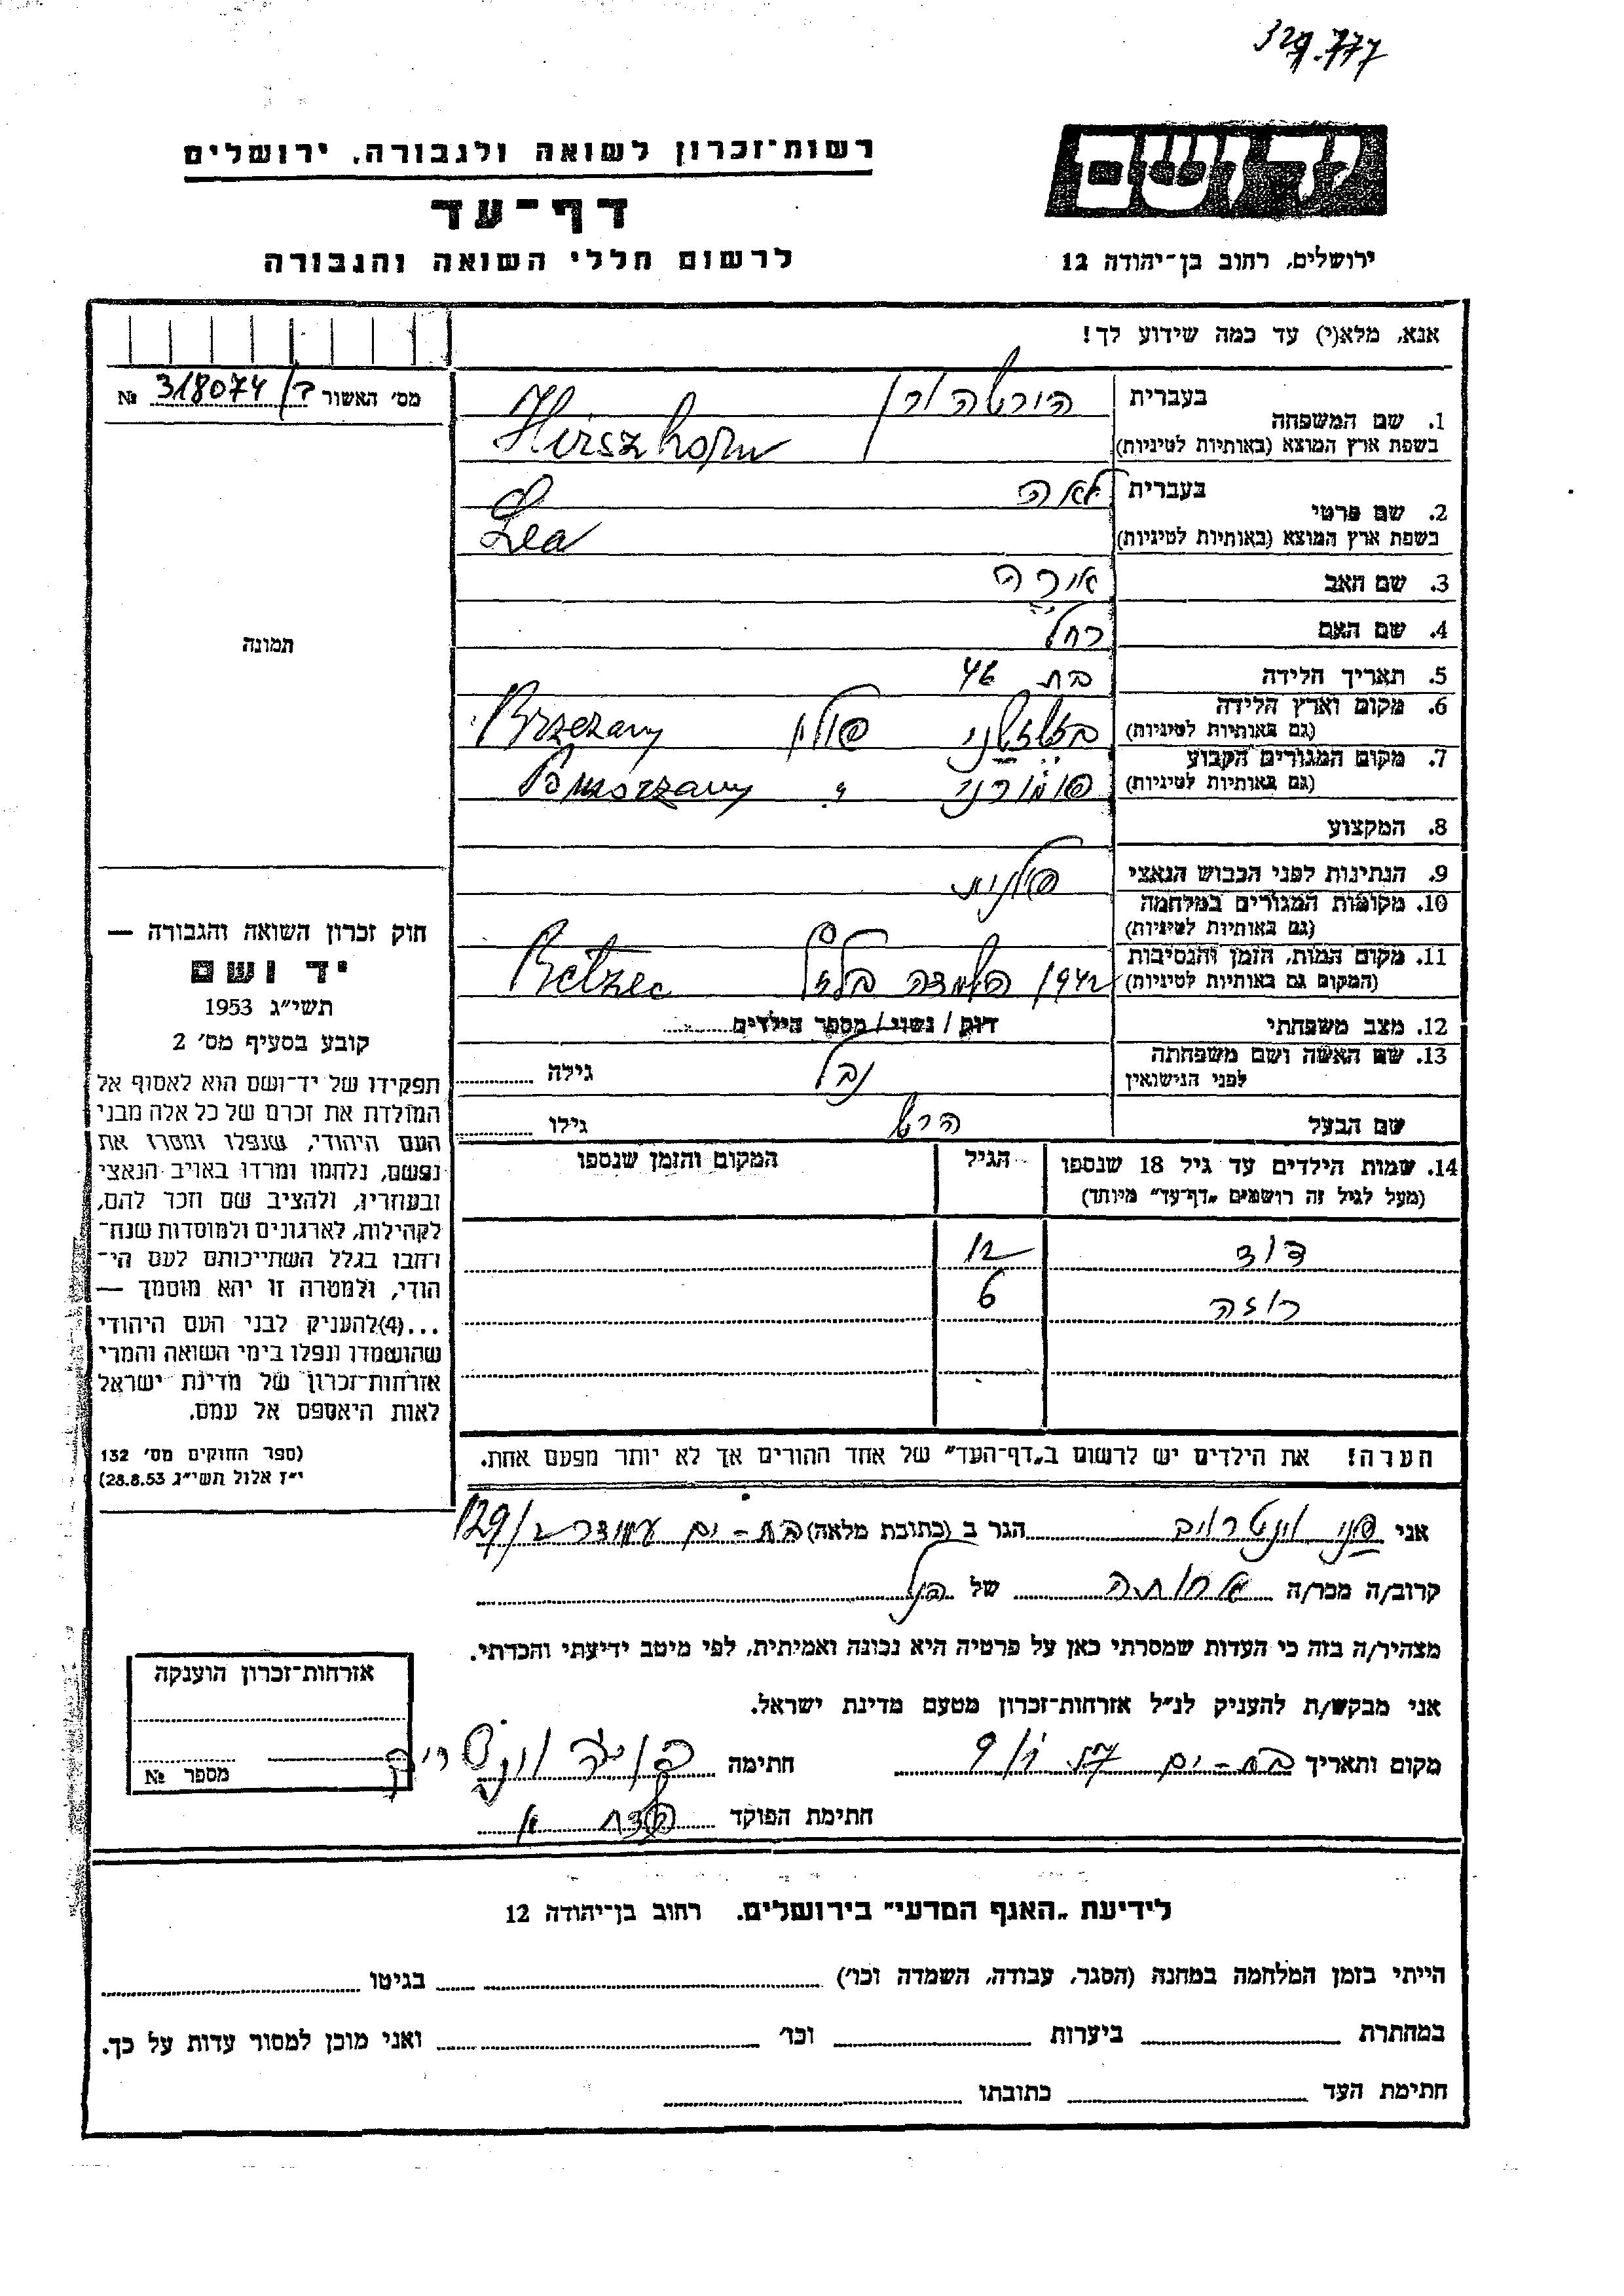 329.777
יד ושם
רשות־זכרון לשואה ולגבורה, ירושלים
דף־עד
לרשום חללי השואה והגבורה
ירושלים, רחוב בן־יהודה 12
אנא, מלא(י) עד כמה שידוע לך!
מס׳ האשור ב/ 318074 №
1. שם המשפחה
בעברית הירשהורן
בשפת ארץ המוצא (באותיות לטיניות) Hirszhorn
2. שם פרטי
בעברית לאה
בשפת ארץ המוצא (באותיות לטיניות) Lea
3. שם האב
4. שם האם רחל
5. תאריך הלידה בת 46
6. מקום וארץ הלידה
(גם באותיות לטיניות) פולין Brzezany
7. מקום המגורים הקבוע
(גם באותיות לטיניות) פומורני Pomorzany
8. המקצוע
9. הנתינות לפני הכבוש הנאצי פולנית
10. מקומות המגורים במלחמה
(גם באותיות לטיניות)
11. מקום המות, הזמן והנסיבות
(המקום גם באותיות לטיניות) 1942 Betzec
12. מצב משפחתי רווק / נשוי / מספר הילדים
13. שם האשה ושם משפחתה
לפני הנישואין גילה
שם הבעל הרש גילו
14. שמות הילדים עד גיל 18 שנספו
(מעל לגיל זה רושמים „דף־עד” מיוחד)
הגיל
המקום והזמן שנספו
דוד 12
רוזה 6
הערה! את הילדים יש לרשום ב„דף־העד” של אחד ההורים אך לא יותר מפעם אחת.
תמונה
חוק זכרון השואה והגבורה —
יד ושם
תשי״ג 1953
קובע בסעיף מס׳ 2
תפקידו של יד־ושם הוא לאסוף אל
המולדת את זכרם של כל אלה מבני
העם היהודי, שנפלו ומסרו את
נפשם, נלחמו ומרדו באויב הנאצי
ובעוזריו, ולהציב שם וזכר להם,
לקהילות, לארגונים ולמוסדות שנח־
רבו בגלל השתייכותם לעם הי־
הודי, ולמטרה זו יהא מוסמך —
...(4) להעניק לבני העם היהודי
שהושמדו ונפלו בימי השואה והמרי
אזרחות־זכרון של מדינת ישראל
לאות היאספם אל עמם.
(ספר החוקים מס׳ 132
י״ז אלול תשי״ג 28.8.53)
אני פני וינטרויב הגר ב (כתובת מלאה) בת-ים 129/2
קרוב/ה מכר/ה אחותה של הנ״ל
מצהיר/ה בזה כי העדות שמסרתי כאן על פרטיה היא נכונה ואמיתית, לפי מיטב ידיעתי והכרתי.
אני מבקש/ת להעניק לנ״ל אזרחות־זכרון מטעם מדינת ישראל.
מקום ותאריך בת-ים חתימה
חתימת הפוקד
אזרחות־זכרון הוענקה
מספר №
לידיעת „האגף המדעי” בירושלים. רחוב בן־יהודה 12
הייתי בזמן המלחמה במחנה (הסגר, עבודה, השמדה וכו׳) בגיטו
במחתרת ביערות וכו׳ ואני מוכן למסור עדות על כך.
חתימת העד כתובתו